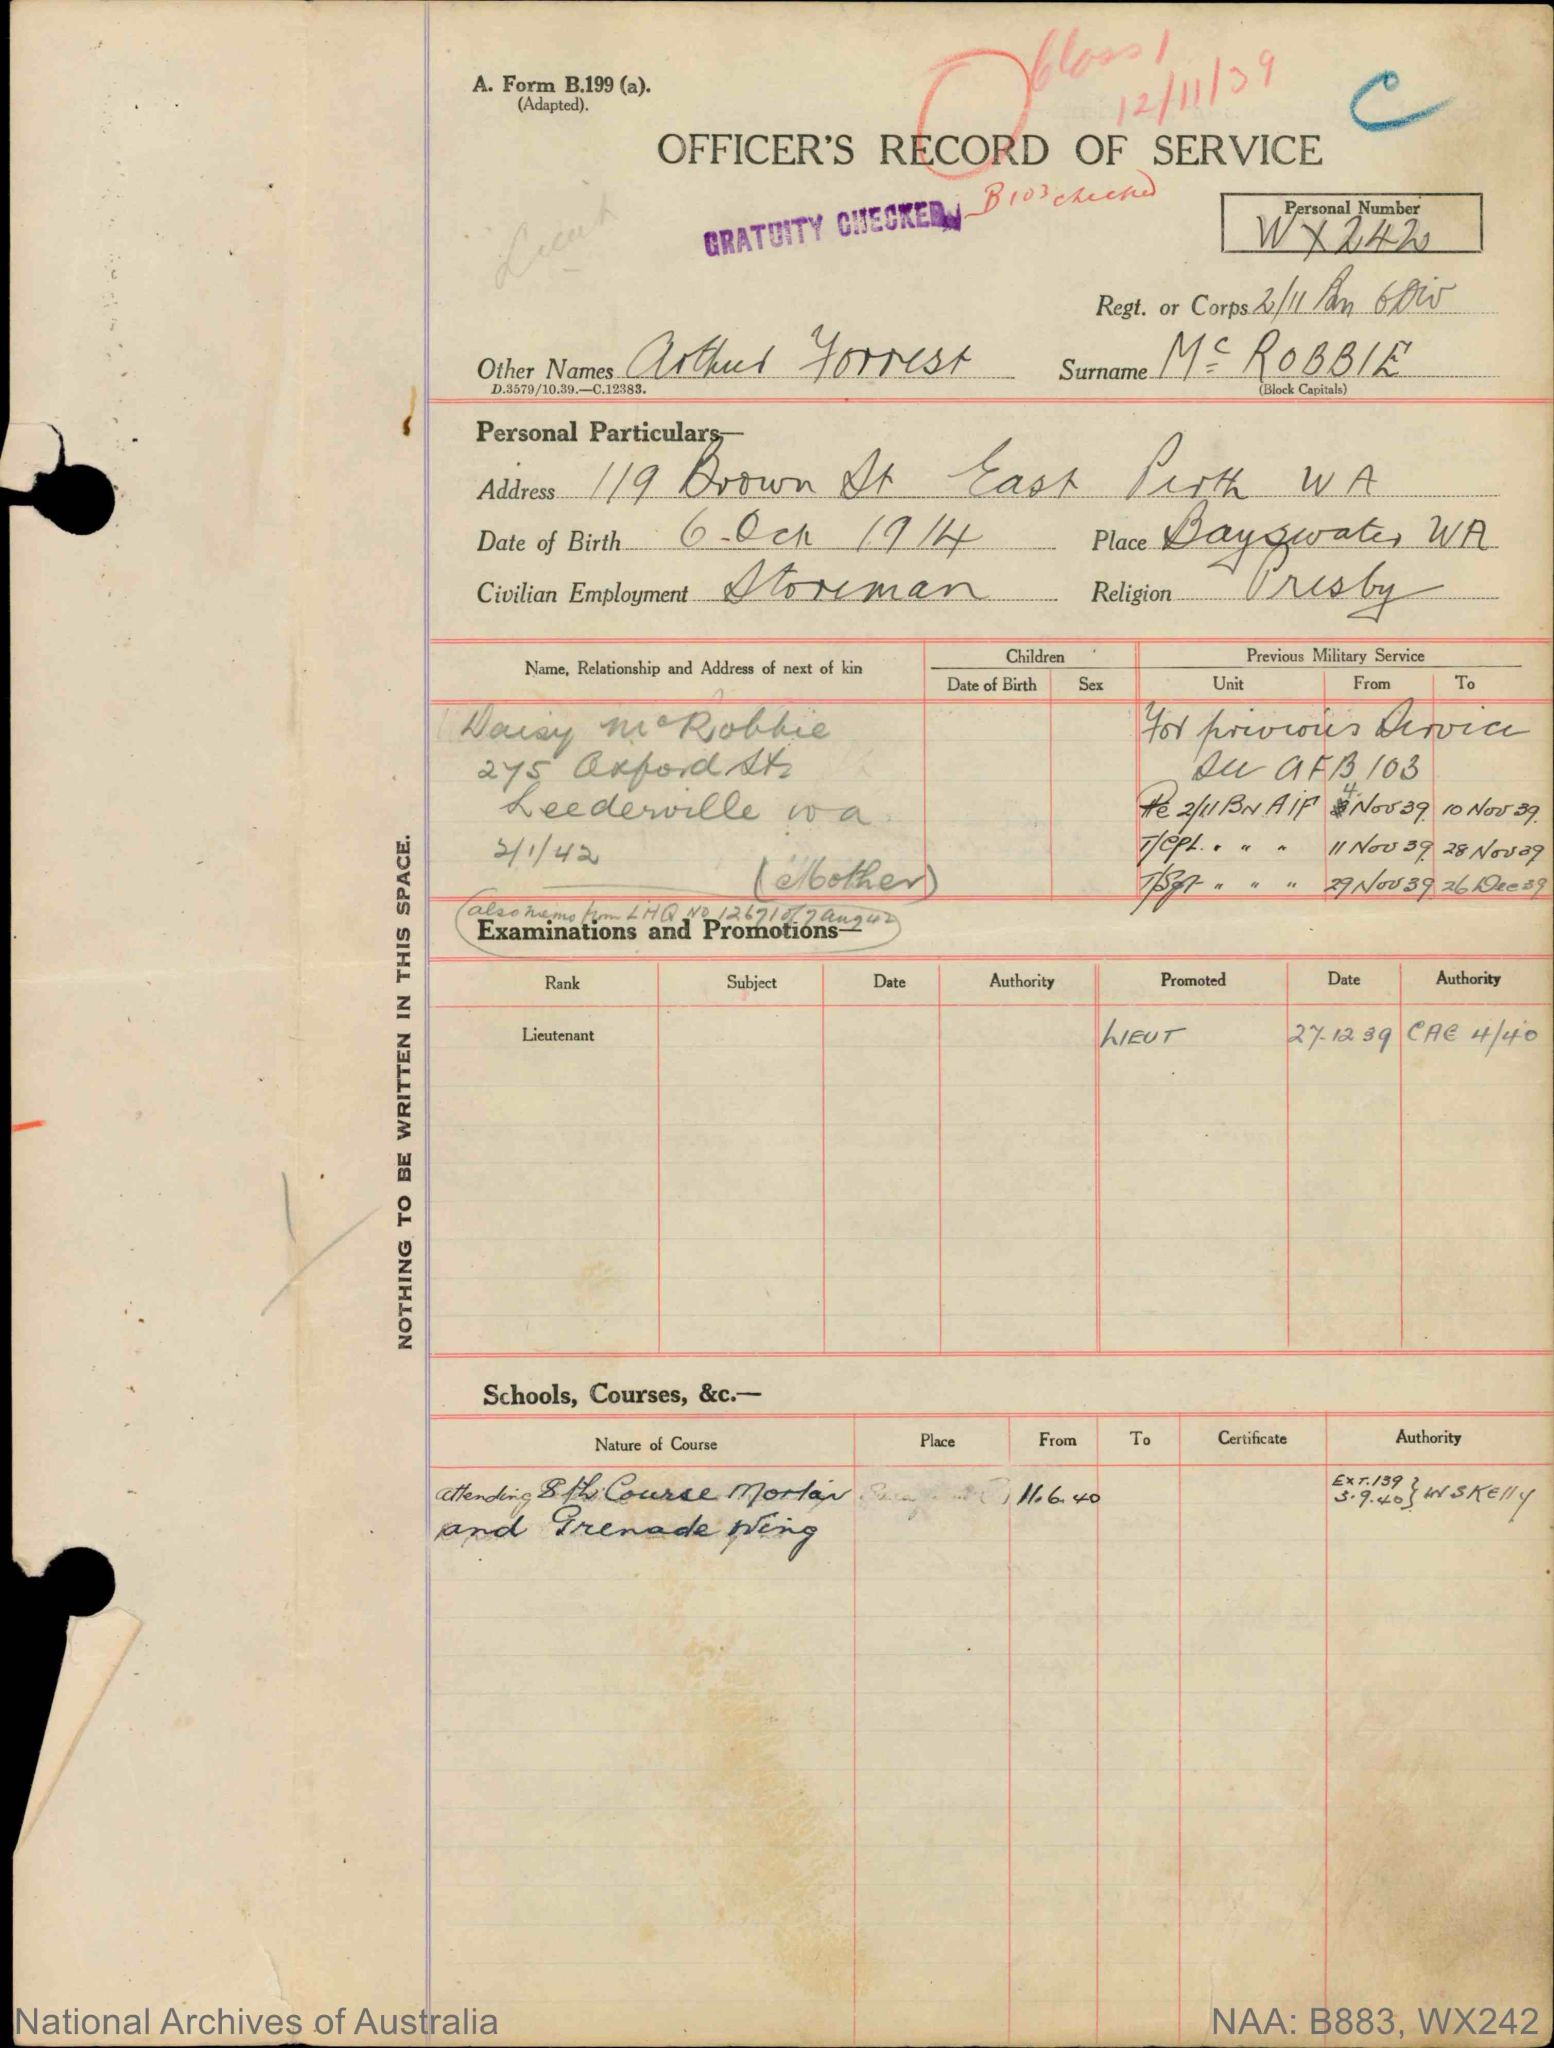 Class 1
12/11/39
C
A. Form B.199 (a).
(Adapted).
OFFICER'S RECORD OF SERVICE
B103 checked
GRATUITY CHECKED
Lieut
Personal Number
WX242
Regt. or Corps 2/11 Bn 6 Div
Other Names Arthur Forrest Surname Mc ROBBIE
D.3579/10.39.—C.12383. (Block Capitals)
Personal Particulars—
Address 119 Brown St East Perth WA
Date of Birth 6 Oct 1914 Place Bayswater WA
Civilian Employment Storeman Religion Presby
Name, Relationship and Address of next of kin Children Previous Military Service
Date of Birth Sex Unit From To
Daisy McRobbie For previous Service
275 Oxford St, See AFB 103
Leederville wa. Pte 2/11 BN AIF 4 Nov 39 10 Nov 39.
2/1/42 T/Cpl. " " " 11 Nov 39 28 Nov 39
(Mother) T/Sgt " " " 29 Nov 39 26 Dec 39
(also memo from LHQ No 12671 of 7 Aug 42
Examinations and Promotions—
Rank Subject Date Authority Promoted Date Authority
Lieutenant LIEUT 27.12 39 CAE 4/40
Schools, Courses, &c.—
Nature of Course Place From To Certificate Authority
attending 8th Course Mortar 11.6.40 EXT.139
and Grenade Wing 3.9.40} WSKelly
NOTHING TO BE WRITTEN IN THIS SPACE.
National Archives of Australia NAA: B883, WX242